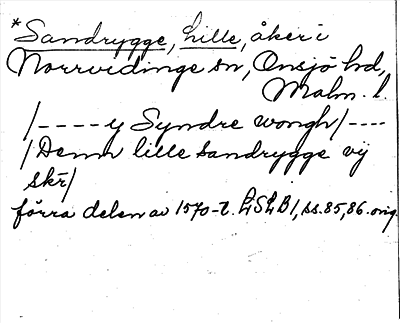 *Sandrygge, Lille, åker i
Norrvidinge sn, Onsjö hd,
Malm. l.
/----y Syndre wongh/----
/Denn lille sandrygge vij
skr/
förra delen av 1570-t. LSLB1, ss.85,86. orig.